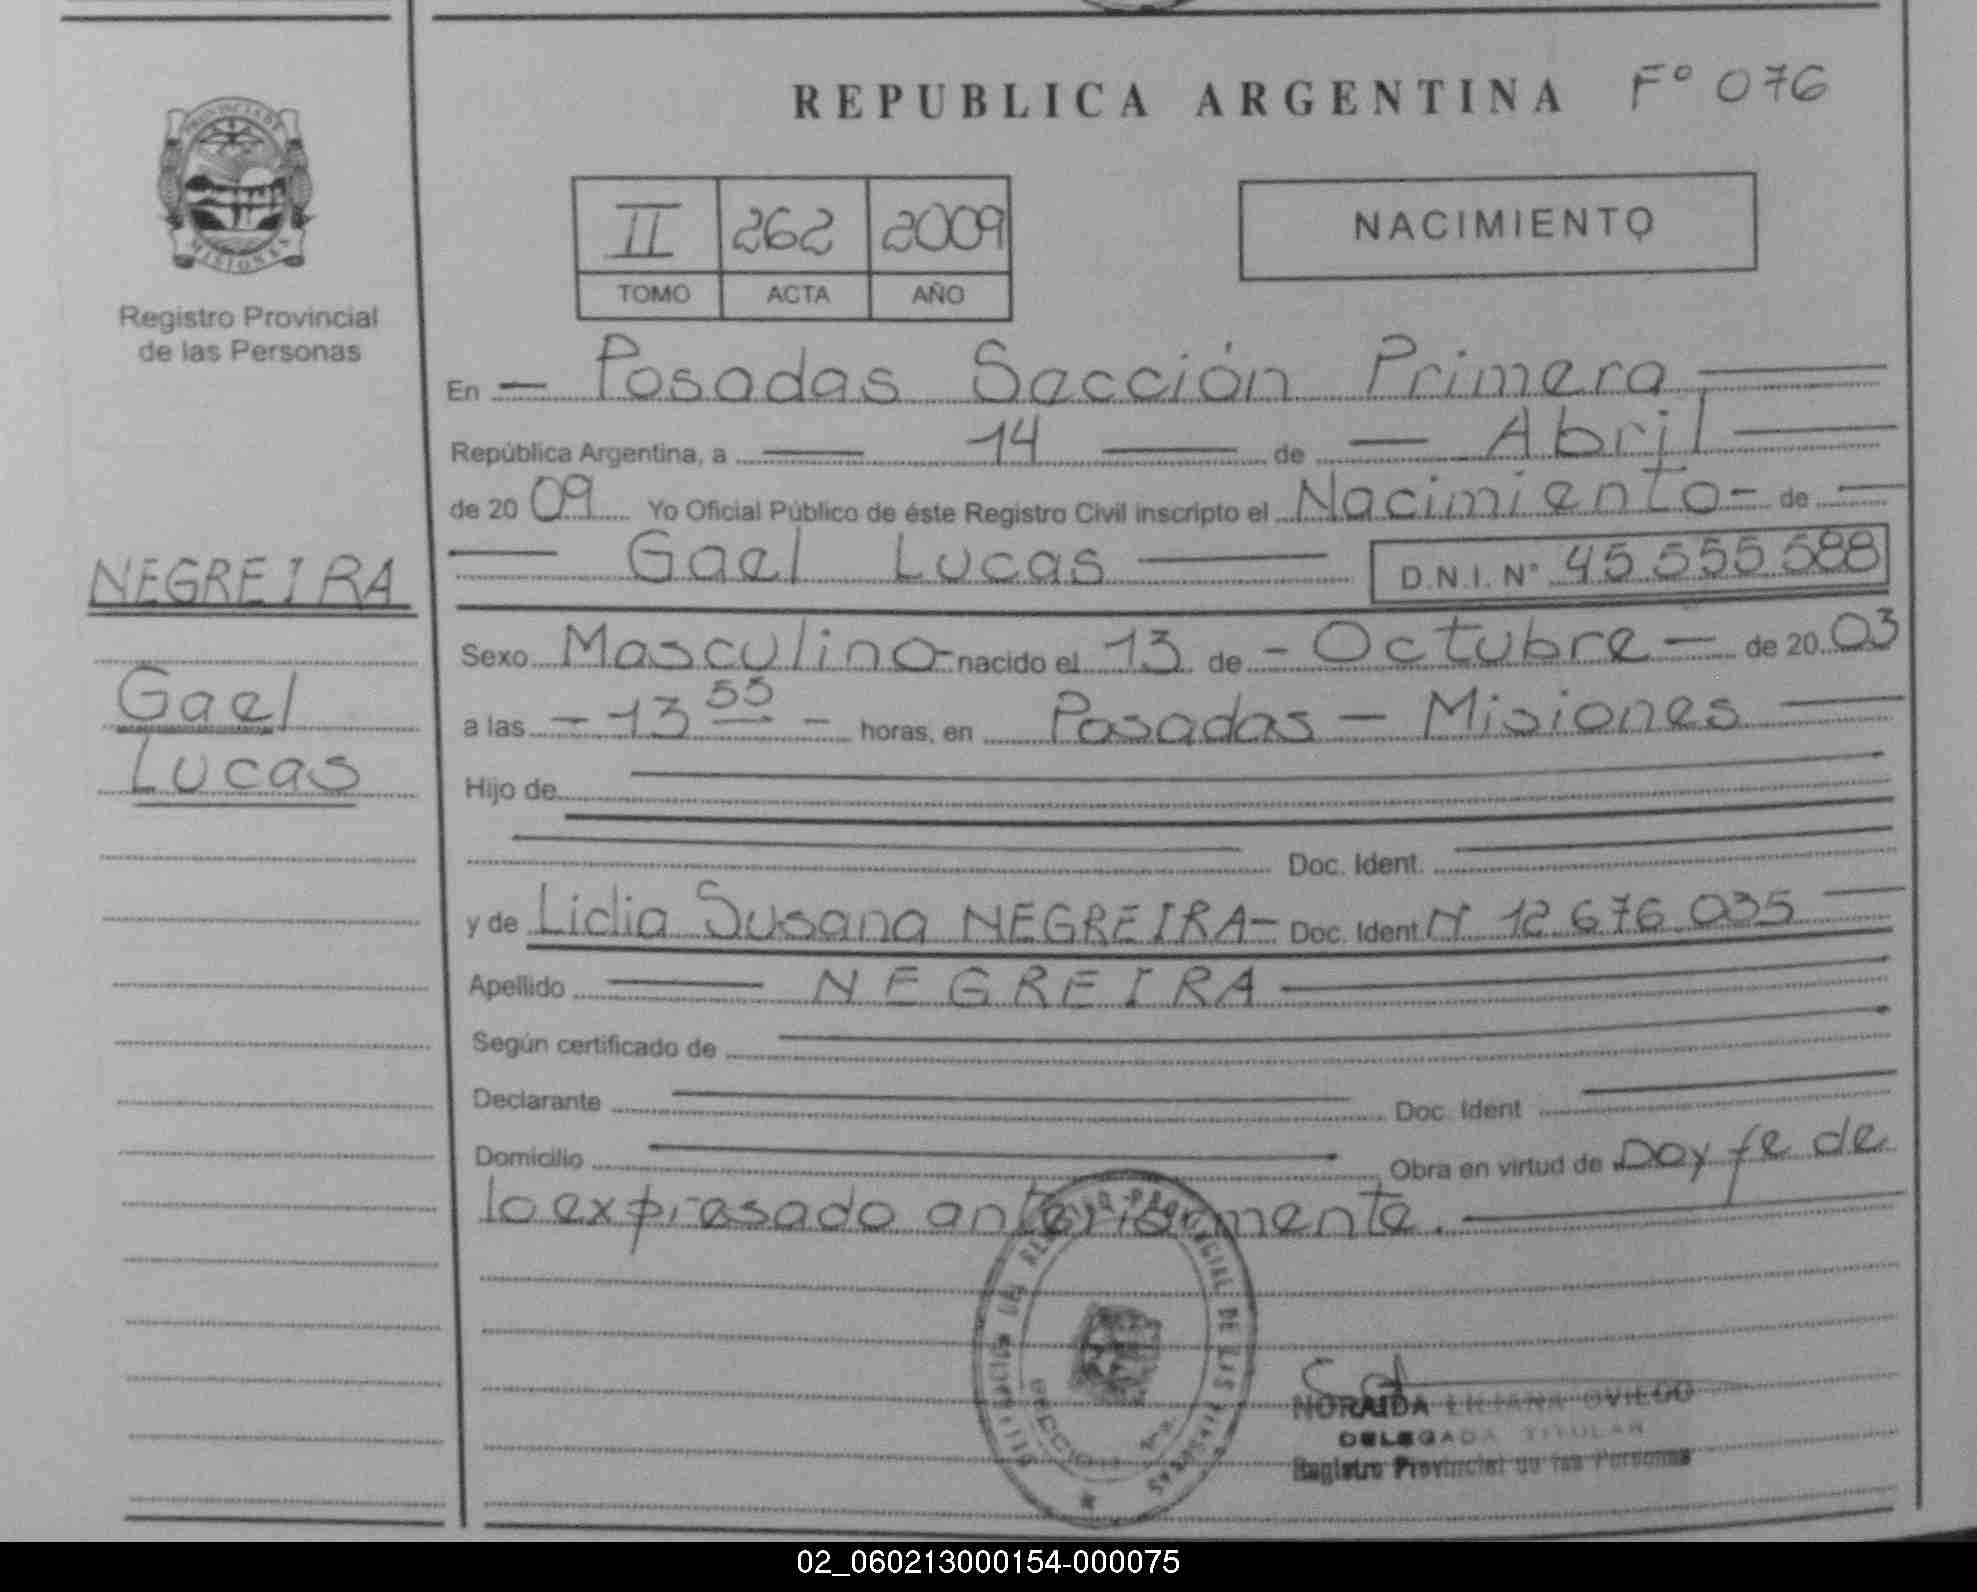 REPUBLICA ARGENTINA Fº 076
PROVINCIA DE
MISIONES
Registro Provincial
de las Personas
II 262 2009
TOMO ACTA AÑO
NACIMIENTO
En — Posadas Sección Primera —
República Argentina, a — 14 — de — Abril —
de 20 09 Yo Oficial Público de éste Registro Civil inscripto el Nacimiento - de —
— Gael Lucas — D.N.I. N° 45.555.588
NEGREIRA
Gael
Lucas
Sexo Masculino - nacido el 13 de - Octubre - de 20 03
a las - 13 55 - horas, en Posadas - Misiones —
Hijo de
Doc. Ident.
y de Lidia Susana NEGREIRA - Doc. Ident N 12.676.035 —
Apellido — NEGREIRA —
Según certificado de —
Declarante — Doc. Ident —
Domicilio — Obra en virtud de Doy fe de
lo expresado anteriormente. —
REGISTRO PROVINCIAL DE LAS PERSONAS
SECCION 1ra.
NORAIDA LILIANA OVIEDO
DELEGADA TITULAR
Registro Provincial de las Personas
02_060213000154-000075